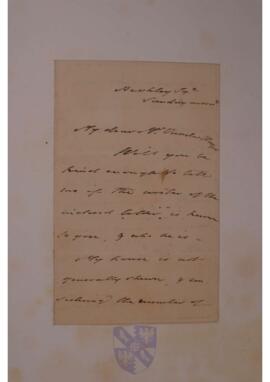 Berkeley Sqe.
Sunday morng.
My dear Mr.
Will you be
kind enough to tell
me if the writer of the
enclosed letter, is known
to you, & who he is -
My house is not
generally shewn, & in
the number of